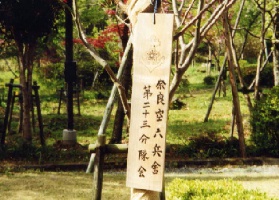 奈良空六兵舎
第二十三分隊会